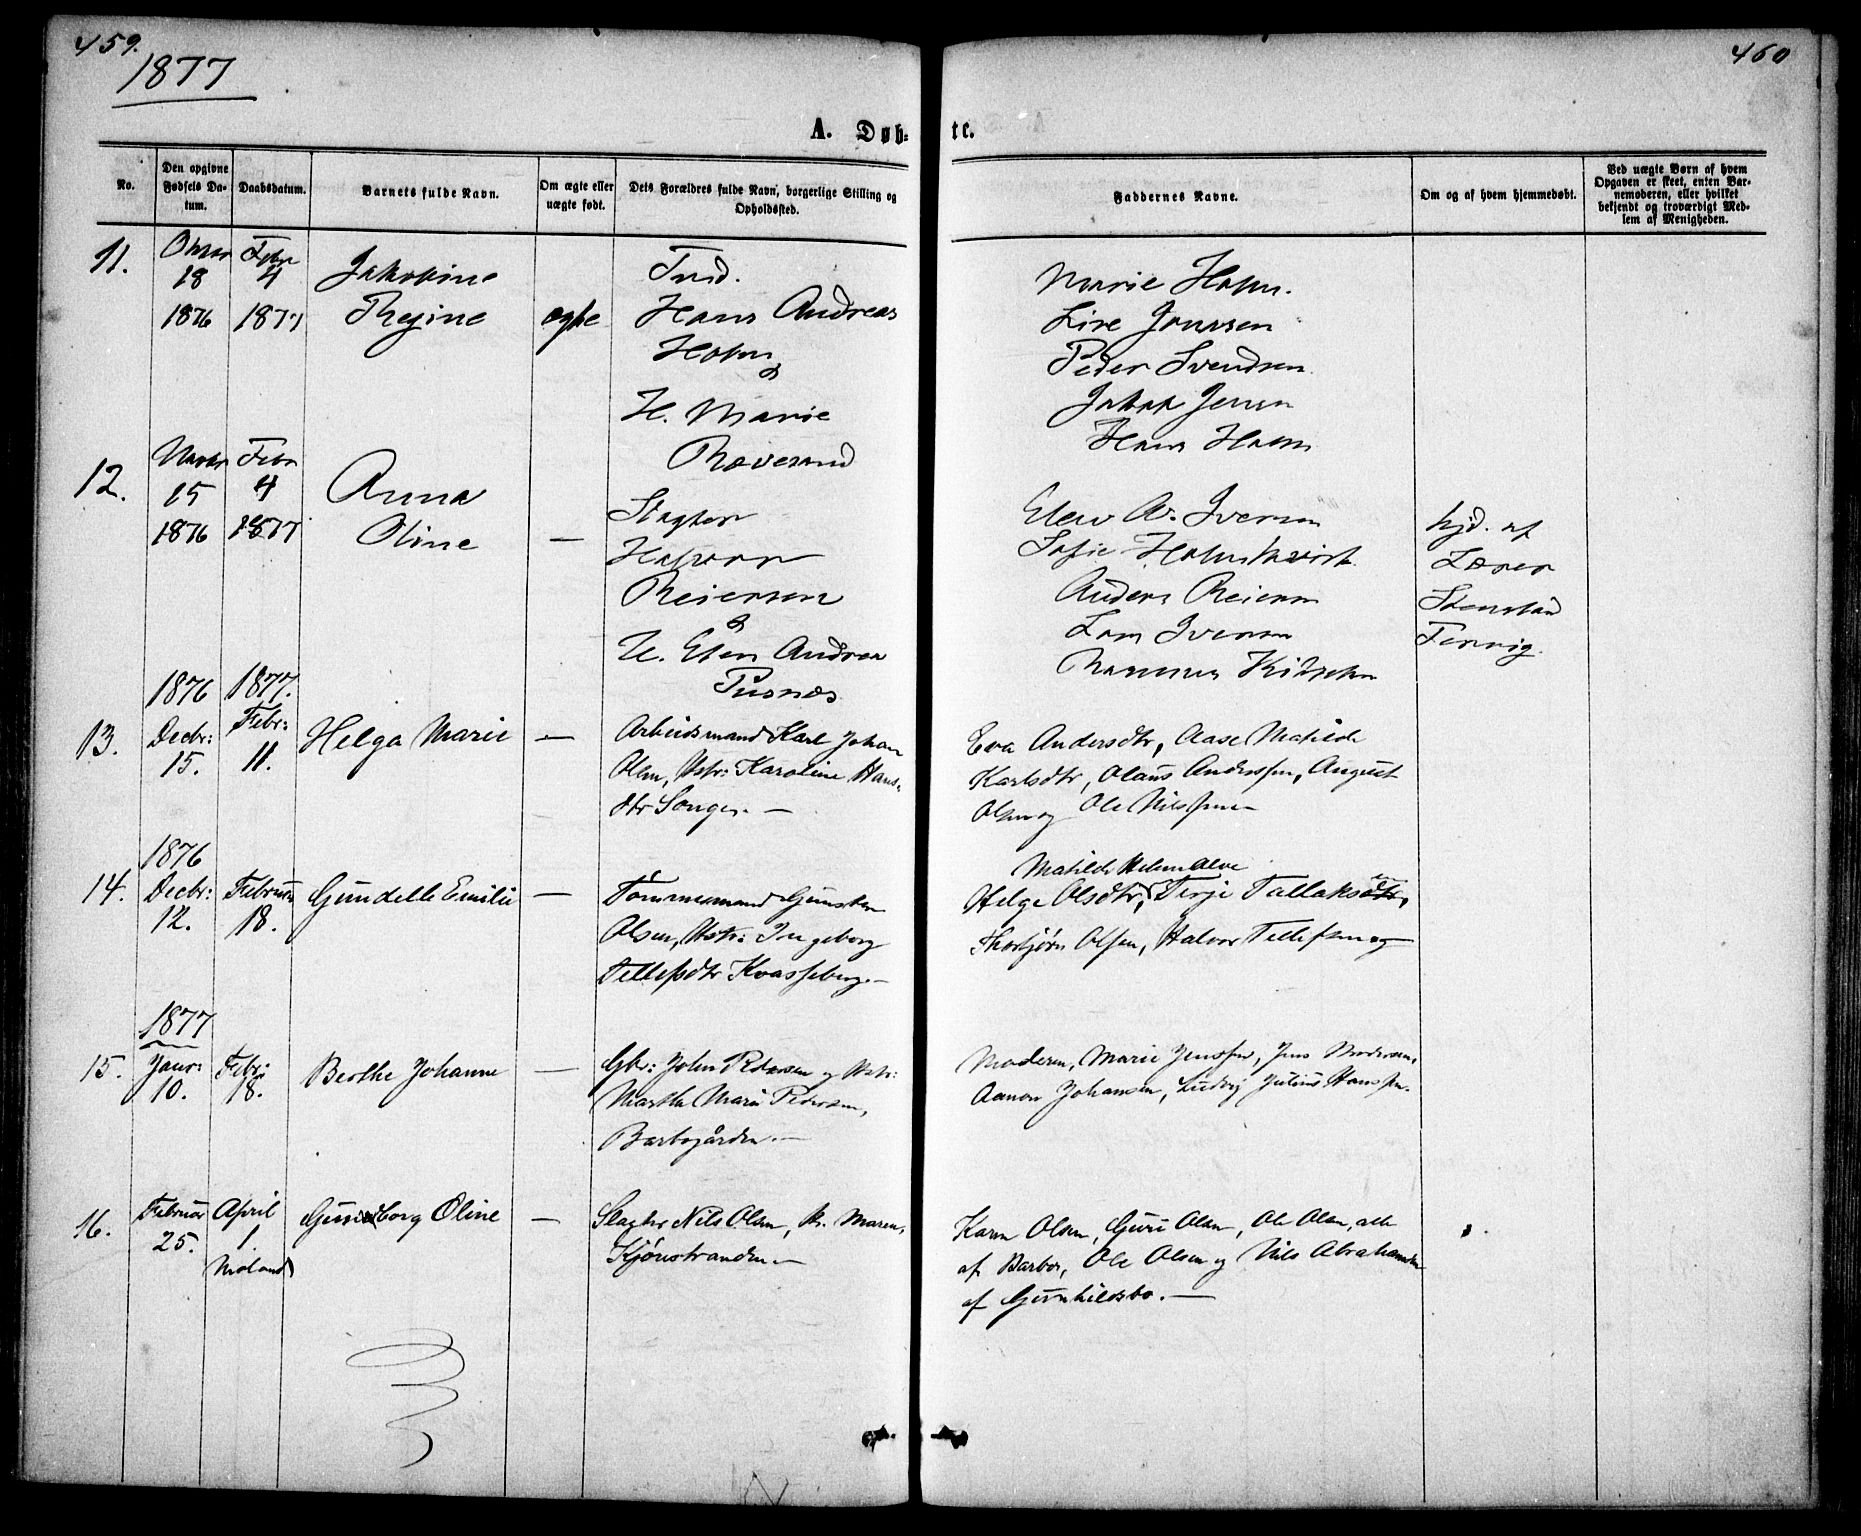 459.
1877
460
A. Døb-
te.
No.
Den opgivne Fødsels Da-tum.
Daabsdatum.
Barnets fulde Navn.
Om ægte eller uægte født.
Dets Forældres fulde Navn, borgerlige Stilling og Opholdssted.
Faddernes Navne.
Om og af hvem hjemmedøbt.
Ved uægte Børn af hvem
Opgaven er skeet, enten Bar-
nemoderen, eller hvilket
bekjendt og troværdigt Med-
lem af Menigheden.
11.
18
1876
Febr
4
1877
Jakobine
Regine
ægte
Hans Andreas
Holm
&
H. Marie
Rævesand
Marie Holm.
Lise Jonssen
Peder Svendsen
Jakob Jensen
Hans Holm
12.
Novbr
15
1876
Febr
4
1877
Anna
Oline
—
Slagter
Halvor
Reiersen
&
H. Elen Andrea
Pusnæs
Elen A. Iversen
Sofie Holmkvist
Anders Reiersen
Lars Iversen
Rasmus
hjd. af
Lærer
Stenstad
Fervig.
13.
1876
Decbr:
15.
1877.
Febr:
11.
Helga Marie
—
Arbeidsmand Karl Johan
Olsen, Hstr: Karoline Hans-
dtr Songe. —
Eva Andersdtr, Aase Matilde
Karlsdtr, Olaus Anderssen, August
Olsen og Ole Nilssen
14.
1876
Decbr:
12.
Februar
18.
Gundelle Emilie
—
Tømmermand Gunsten
Olsen, Hstr: Ingeborg
Tellefsdtr Kvasseberg. —
Matilde Helene Alve
Helge Olsdtr, Terje Tallaksdtr,
Thorbjørn Olsen, Halvor Tellefsen og
15.
1877
Janr:
10.
Febr:
18.
Berthe Johanne
—
Gbr: John Pedersen og Hstr:
Marthe Marie Pedersen,
Barbogården. —
Moderen, Marie Jenssen, Jens Pedersen,
Aanon Johansen, Ludvig Julius Hanssen.
16.
Februar
25.
April
1.
Moland
Gunborg Oline
—
Slagter Nils Olsen, H. Maren,
Kjønstranden —
Karen Olsen, Guri Olsen, Ole Olsen, alle
af Barbo, Ole Olsen og Nils Abrahamsen
af Gunhildsbo. —